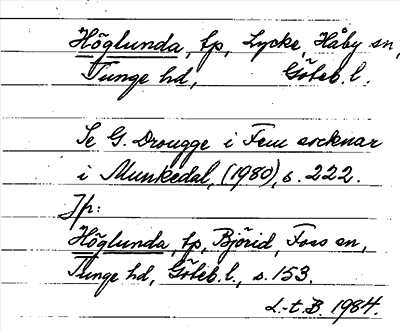 Höglunda, tp, Lycke, Håby sn,
Tunge hd, Göteb. l.
Se G. Drougge i Fem socknar
i Munkedal, (1980), s. 222.
Jfr:
Höglunda, tp, Björid, Foss sn,
Tunge hd, Göteb. l., s. 153.
L.-t. B. 1984.